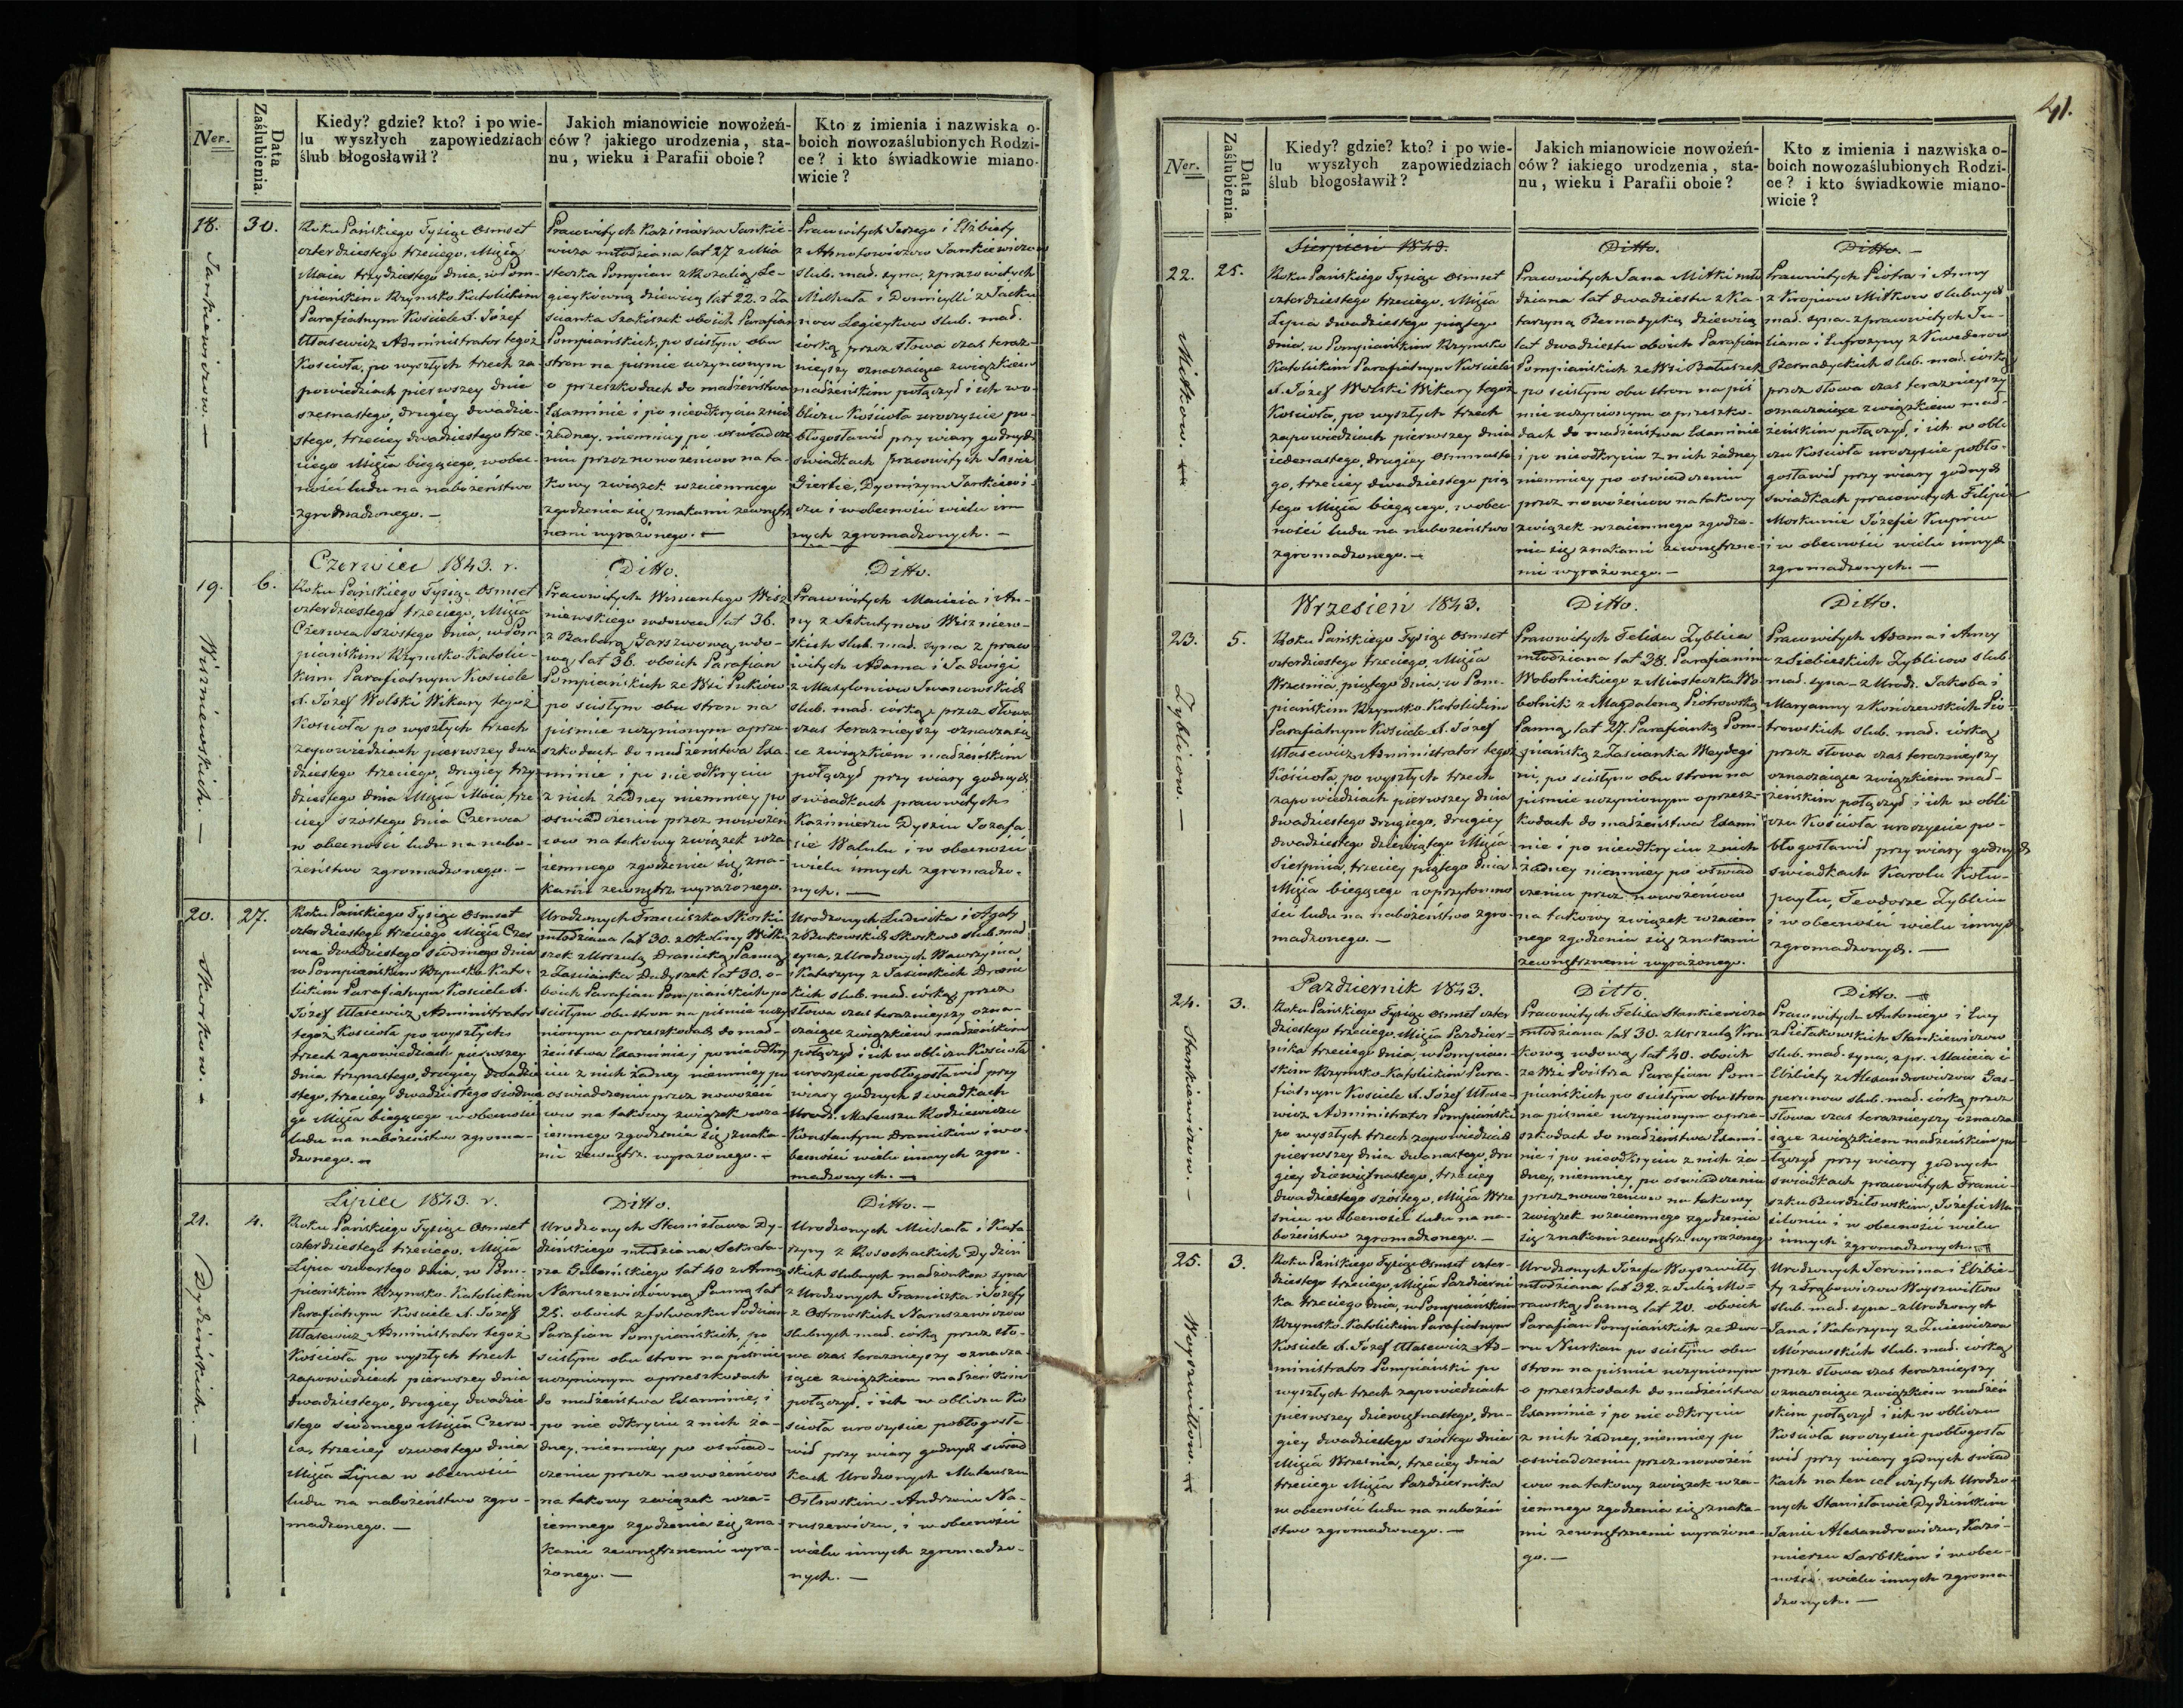 Ner.
Data
Zaślubienia.
Kiedy? gdzie? kto? i po wie-
lu wyszłych zapowiedziach
ślub błogosławił?
Jakich mianowicie nowożeń-
ców? jakiego urodzenia, sta-
nu, wieku i Parafii oboie?
Kto z imienia i nazwiska o-
boich nowozaślubionych Rodzi-
ce? i kto świadkowie miano-
wicie?
18.
Jankiewiczow. —
30.
Roku Pańskiego Tysiąc Osmset
czterdziestego trzeciego, Mięsią
Maia trzydziestego dnia, w Pom-
piańskim Rzymsko Katolickim
Parafialnym Kościele X. Józef
Ułasewicz Administrator tegoż
Kościoła, po wyszłych trzech za
powiedziach pierwszey dnia
szesnastego, drugiey dwadzie-
stego, trzeciey dwadziestego trze-
ciego Mięsią biegącego, w obec-
ności ludu na nabożeństwo
zgromadzonego. —
Pracowitych Kazimierza Jankie-
wicza młodziana lat 27 z Mia
steczka Pompian z Rozalią Le-
gieykówną dziewicą lat 22. z Za
ścianka Szakiszek oboich Parafian
Pompiańskich, po ścisłym obu
stron na pismie uczynionym
o przeszkodach do małżeństwa
Examinie i po nieodkryciu z nich
żadney, niemniey po oświadcze
niu przez nowożeńcow na ta-
kowy związek wzaiemnego
zgodzenia się znakami zewnętrz
nemi wyrażonego. —
Pracowitych Jerzego i Elżbiety
z Abnotowiczow Jankiewiczow
slub. mał. syna, z pracowitych
Michała i Domicylli z Jacku
now Legieykow slub. mał.
corką przez słowa czas teraz-
nieyszy oznaczaiące związkiem
małżeńskim połączył i ich wo-
bliczu Kościoła uroczyście po-
błogosławił przy wiary godnych
swiadkach pracowitych Janie
Giertie, Dyonizym Jankiewi
czu i w obecności wielu in
nych zgromadzonych. —
19.
Wiszniewskich. —
6.
Czerwiec 1843. r.
Roku Pańskiego Tysiąc Osmset
czterdziestego trzeciego, Mięsią
Czerwca szóstego dnia, w Pom
piańskim Rzymsko-Katolic-
kim Parafialnym Kościele
X. Józef Wolski Wikary tegoż
Kościoła po wyszłych trzech
zapowiedziach pierwszey dwa
dziestego trzeciego, drugiey trzy
dziestego dnia Mięsią Maia, trze
ciey szostego dnia Czerwca
w obecności ludu na nabo-
żeństwo zgromadzonego. —
Ditto.
Pracowitych Wincentego Wisz
niewskiego wdowca lat 36.
z Barbarą Garszwową wdo-
wą lat 36. oboich Parafian
Pompiańskich ze Wsi Pukiow
po ścisłym obu stron na
pismie uczynionym o prze
szkodach do małżeństwa Exa-
minie i po nieodkryciu
z nich żadney niemniey po
oświadczeniu przez nowożeń
cow na takowy związek wza
iemnego zgodzenia się zna-
kami zewnętrz. wyrażonego.
Ditto.
Pracowitych Macieia i An-
ny z Szkutynow Wiszniew-
skich slub. mał. syna z praco
witych Adama i Jadwigi
z Matylonisow Iwanowskich
slub. mał. corką, przez słowa
czas teraznieyszy oznaczaią
ce związkiem małżeńskim
połączył przy wiary godnych
swiadkach pracowitych
Kazimierzu Dyszin Jozafa
cie Walulu i w obecności
wielu innych zgromadzo-
nych. —
20.
Skorkow. —
27.
Roku Pańskiego Tysiąc Osmset
czterdziestego trzeciego Mięsią Czer
wca dwudziestego siodmego dnia
w Pompiańskim Rzymsko-Kato-
lickim Parafialnym Kościele X.
Józef Ułasewicz Administrator
tegoż Kościoła po wyszłych
trzech zapowiedziach pierwszey
dnia trzynastego, drugiey dwadzie
stego, trzeciey dwadziestego siodme
go Mięsią biegącego w obecności
ludu na nabożeństwo zgroma-
dzonego. —
Urodzonych Franciszka Skorki
młodziana lat 30. z okoliny Wilki
szek z Urszulą Dranicką Panną
z Zaścianka Dudyszek lat 30. o-
boich Parafian Pompiańskich po
ścisłym obu stron na pismie uczy
nionym o przeszkodach do mał-
żeństwa Examinie i po nieodkry
ciu z nich żadney niemniey po
oświadczeniu przez nowożeń
cow na takowy związek wza-
iemnego zgodzenia się znaka-
mi zewnętrz. wyrażonego. —
Urodzonych Ludwika i Agaty
z Bukowskich Skorkow slub. mał
syna, z Urodzonych Wawrzyńca
i Katarzyny z Jasinskich Dranic
kich slub. mał. corką przez
słowa czas teraznieyszy ozna-
czaiące związkiem małżeńskim
połączył i ich w obliczu Kościoła
uroczyście pobłogosławił przy
wiary godnych swiadkach
Urodz. Mateuszu Rodziewiczu
Konstantym Dranickim i wo-
becności wielu innych zgro-
madzonych. —
21.
Dydzińskich. —
4.
Lipiec 1843. r.
Roku Pańskiego Tysiąc Osmset
czterdziestego trzeciego, Mięsią
Lipca czwartego dnia, w Pom-
piańskim Rzymsko-Katolickim
Parafialnym Kościele X. Józef
Ułasewicz Administrator tegoż
Kościoła po wyszłych trzech
zapowiedziach pierwszey dnia
dwadziestego, drugiey dwadzie
stego siodmego Mięsią Czerw-
ca, trzeciey czwartego dnia
Mięsią Lipca w obecności
ludu na nabożeństwo zgro-
madzonego. —
Ditto.
Urodzonych Stanisława Dy-
dzińskiego młodziana Sekreta-
rza Guberńskiego lat 40 z Anną
Naruszewiczówną Panną lat
25. oboich z folwarku Podzian
Parafian Pompiańskich, po
ścisłym obu stron na pismie
uczynionym o przeszkodach
do małżeństwa Examinie, i
po nie odkryciu z nich ża-
dney, niemniey po oświad-
czeniu przez nowożeńcow
na takowy związek wza-
iemnego zgodzenia się zna
kami zewnętrznemi wyra-
żonego. —
Ditto. —
Urodzonych Michała i Kata
rzyny z Rosochackich Dydziń
skich slubnych małżonkow syna
z Urodzonych Franciszka i Józefy
z Ostrowskich Naruszewiczow
slubnych mał. corką przez sło-
wa czas teraznieyszy oznacza-
iące związkiem małżeńskim
połączył, i ich w obliczu Ko
scioła uroczyście pobłogosła-
wił przy wiary godnych swiad
kach Urodzonych Mateuszu
Orłowskim, Andrzeiu Na-
ruszewiczu, i w obecności
wielu innych zgromadzo-
nych. —
41.
Ner.
Data
Zaślubienia
Kiedy? gdzie? kto? i po wie-
lu wyszłych zapowiedziach
ślub błogosławił?
Jakich mianowicie nowożeń-
ców? iakiego urodzenia, sta-
nu, wieku i Parafii oboie?
Kto z imienia i nazwiska o-
boich nowozaślubionych Rodzi-
ce? i kto świadkowie miano-
wicie?
22.
Mitkow.
25.
Sierpień 1843.
Roku Pańskiego Tysiąc Osmset
czterdziestego trzeciego, Mięsią
Lipca dwadziestego piątego
dnia, w Pompiańskim Rzymsko
Katolickim Parafialnym Kościele
X. Józef Wolski Wikary tegoż
Kościoła, po wyszłych trzech
zapowiedziach pierwszey dnia
iedenastego, drugiey Osmnaste
go, trzeciey dwadziestego pią
tego Mięsią biegącego, w obec
ności ludu na nabożeństwo
zgromadzonego. —
Ditto.
Pracowitych Jana Mitki mło
dziana lat dwadziestu z Ka-
tarzyną Bernadycką dziewicą
lat dwadziestu oboich Parafian
Pompiańskich ze Wsi Batuszek
po ścisłym obu stron na piś
mie uczynionym o przeszko-
dach do małżeństwa Examinie
i po nieodkryciu z nich żadney
niemniey po oświadczeniu
przez nowożeńcow na takowy
związek wzaiemnego zgodze-
nia się znakami zewnętrzne-
mi wyrażonego. —
Ditto. —
Pracowitych Piotra i Anny
z Kropow Mitkow slubnych
mał. syna z pracowitych Ju-
liana i Eufrozyny z Niwederow
Bernadyckich slub. mał. corką
przez słowa czas teraznieyszy
oznaczaiące związkiem mał-
żeńskim połączył, i ich w obli
czu Kościoła uroczyście pobło-
gosławił przy wiary godnych
swiadkach pracowitych Filipie
Morkunie Józefie Kupriu
i w obecności wielu innych
zgromadzonych. —
23.
Zyblicow. —
5.
Wrzesień 1843.
Roku Pańskiego Tysiąc Osmset
czterdziestego trzeciego, Mięsią
Września piątego dnia, w Pom-
piańskim Rzymsko-Katolickim
Parafialnym Kościele X. Józef
Ułasewicz Administrator tegoż
Kościoła, po wyszłych trzech
zapowiedziach pierwszey dnia
dwadziestego drugiego, drugiey
dwadziestego dziewiątego Mięsią
Sierpnia, trzeciey piątego dnia
Mięsią biegącego w przytomno
ści ludu na nabożeństwo zgro-
madzonego. —
Ditto.
Pracowitych Felixa Zyblica
młodziana lat 38. Parafianina
Wobolnickiego z Miasteczka Wo-
bolnik z Magdaleną Piotrowską
Panną lat 27. Parafianką Pom-
piańską z Zaścianka Meydegi
ni, po ścisłym obu stron na
pismie uczynionym o przesz-
kodach do małżeństwa Exami
nie i po nieodkryciu z nich
żadney niemniey po oświad
czeniu przez nowożeńcow
na takowy związek wzaiem
nego zgodzenia się znakami
zewnętrznemi wyrażonego.
Ditto.
Pracowitych Adama i Anny
z Siebieskich Zyblicow slub.
mał. syna — z Urodz. Jakoba i
Maryanny z Konczewskich Pio-
trowskich slub. mał. corką
przez słowa czas teraznieyszy
oznaczaiące związkiem mał-
żeńskim połączył i ich w obli
czu Kościoła uroczyście po-
błogosławił przy wiary godnych
swiadkach Karolu Kotu-
paylu, Teodorze Zyblicu
i w obecności wielu innych
zgromadzonych. —
24.
Stankiewiczow. —
3.
Pazdziernik 1843.
Roku Pańskiego Tysiąc Osmset czter
dziestego trzeciego, Mięsią Pazdzier=
nika trzeciego dnia, w Pompian-
skim Rzymsko-Katolickim Para-
fialnym Kościele X. Józef Ułase-
wicz Administrator Pompiański
po wyszłych trzech zapowiedziach
pierwszey dnia dwanastego, dru
giey dziewiętnastego, trzeciey
dwadziestego szóstego, Mięsią Wrze
śnia w obecności ludu na na-
bożeństwo zgromadzonego. —
Ditto.
Pracowitych Felixa Stankiewicza
młodziana lat 30. z Urszulą Kru
kową wdową lat 40. oboich
ze Wsi Poistrza Parafian Pom-
piańskich po ścisłym obu stron
na pismie uczynionym o prze-
szkodach do małżeństwa Exami-
nie i po nieodkryciu z nich ża-
dney, niemniey po oświadczeniu
przez nowożeńcow na takowy
związek wzaiemnego zgodzenia
się znakami zewnętrz. wyrażonego
Ditto. —
Pracowitych Antoniego i Ewy
z Pietakowskich Stankiewiczow
slub. mał. syna, z pr. Macieia i
Elżbiety z Alexandrowiczow Gas-
perunow slub. mał. corką przez
słowa czas teraznieyszy oznacza
iące związkiem małżeńskim po
łączył przy wiary godnych
swiadkach pracowitych Franci-
szku Burdziłowskim, Józefie Ma
siloniu i w obecności wielu
innych zgromadzonych.
25.
Woyszwiłłow.
3.
Roku Pańskiego Tysiąc Osmset czter-
dziestego trzeciego, Mięsią Pazdzierni
ka trzeciego dnia, w Pompiańskim
Rzymsko-Katolickim Parafialnym
Kościele X. Józef Ułasewicz Ad-
ministrator Pompiański po
wyszłych trzech zapowiedziach
pierwszey dziewiętnastego, dru-
giey dwadziestego szóstego dnia
Mięsią Września, trzeciey dnia
trzeciego Mięsią Pazdziernika
w obecności ludu na nabożeń
stwo zgromadzonego. —
Urodzonych Józefa Woyszwiłły
młodziana lat 32. z Julią Mo=
rawską Panną lat 20. oboich
Parafian Pompiańskich ze Dwo-
ru Nurkan po ścisłym obu
stron na pismie uczynionym
o przeszkodach do małżeństwa
Examinie i po nieodkryciu
z nich żadney, niemniey po
oświadczeniu przez nowożeń
cow na takowy związek wza-
iemnego zgodzenia się znaka-
mi zewnętrznemi wyrażone-
go. —
Urodzonych Jeronima i Elżbie-
ty z Frąbowiczow Woyszwiłłow
slub. mał. syna — z Urodzonych
Jana i Katarzyny z Zniewiczow
Morawskich slub. mał. corką
przez słowa czas teraznieyszy
oznaczaiące związkiem małżeń
skim połączył i ich w obliczu
Kościoła uroczyście pobłogosła
wił przy wiary godnych swiad
kach na ten cel użytych Urodzo-
nych Stanisławie Dydzińskim
Janie Alexandrowiczu, Kazi-
mierzu Sarbskim i w obec-
ności wielu innych zgroma-
dzonych. —